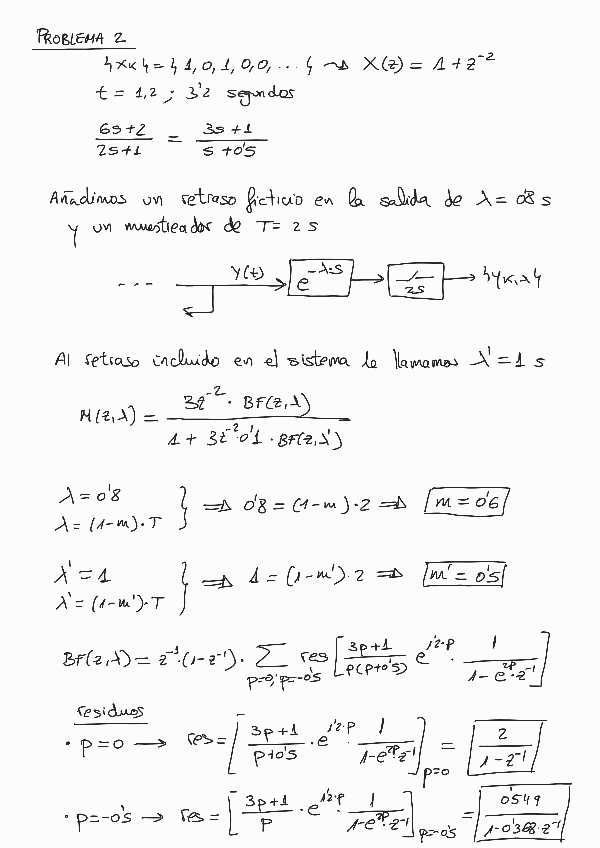 PROBLEMA 2
{xK} = {1, 0, 1, 0, 0, ... } ⇝ X(z) = 1 + z⁻²
t = 1,2 ; 3'2 segundos
(6s+2)/(2s+1) = (3s+1)/(s+0'5)
Añadimos un retraso ficticio en la salida de λ = 0'8 s
y un muestreador de T = 2 s
... Y(t) e^(-λ·s) 2s {yK,λ}
Al retraso incluido en el sistema le llamamos λ' = 1 s
M(z,λ) = (3z⁻² · BF(z,λ)) / (1 + 3z⁻²·0'1 · BF(z,λ'))
λ = 0'8
λ = (1-m)·T } ⇒ 0'8 = (1-m)·2 ⇒ m = 0'6
λ' = 1
λ' = (1-m')·T } ⇒ 1 = (1-m')·2 ⇒ m' = 0'5
BF(z,λ) = z⁻¹·(1-z⁻¹) · Σ p=0; p=-0'5 res [ (3p+1)/(p(p+0'5)) e^(1'2·p) · 1/(1-e^(2p)·z⁻¹) ]
residuos
· p=0 → res = [ (3p+1)/(p+0'5) · e^(1'2·p) · 1/(1-e^(2p)·z⁻¹) ] p=0 = 2/(1-z⁻¹)
· p=-0'5 → res = [ (3p+1)/p · e^(1'2·p) · 1/(1-e^(2p)·z⁻¹) ] p=-0'5 = 0'549/(1-0'368·z⁻¹)